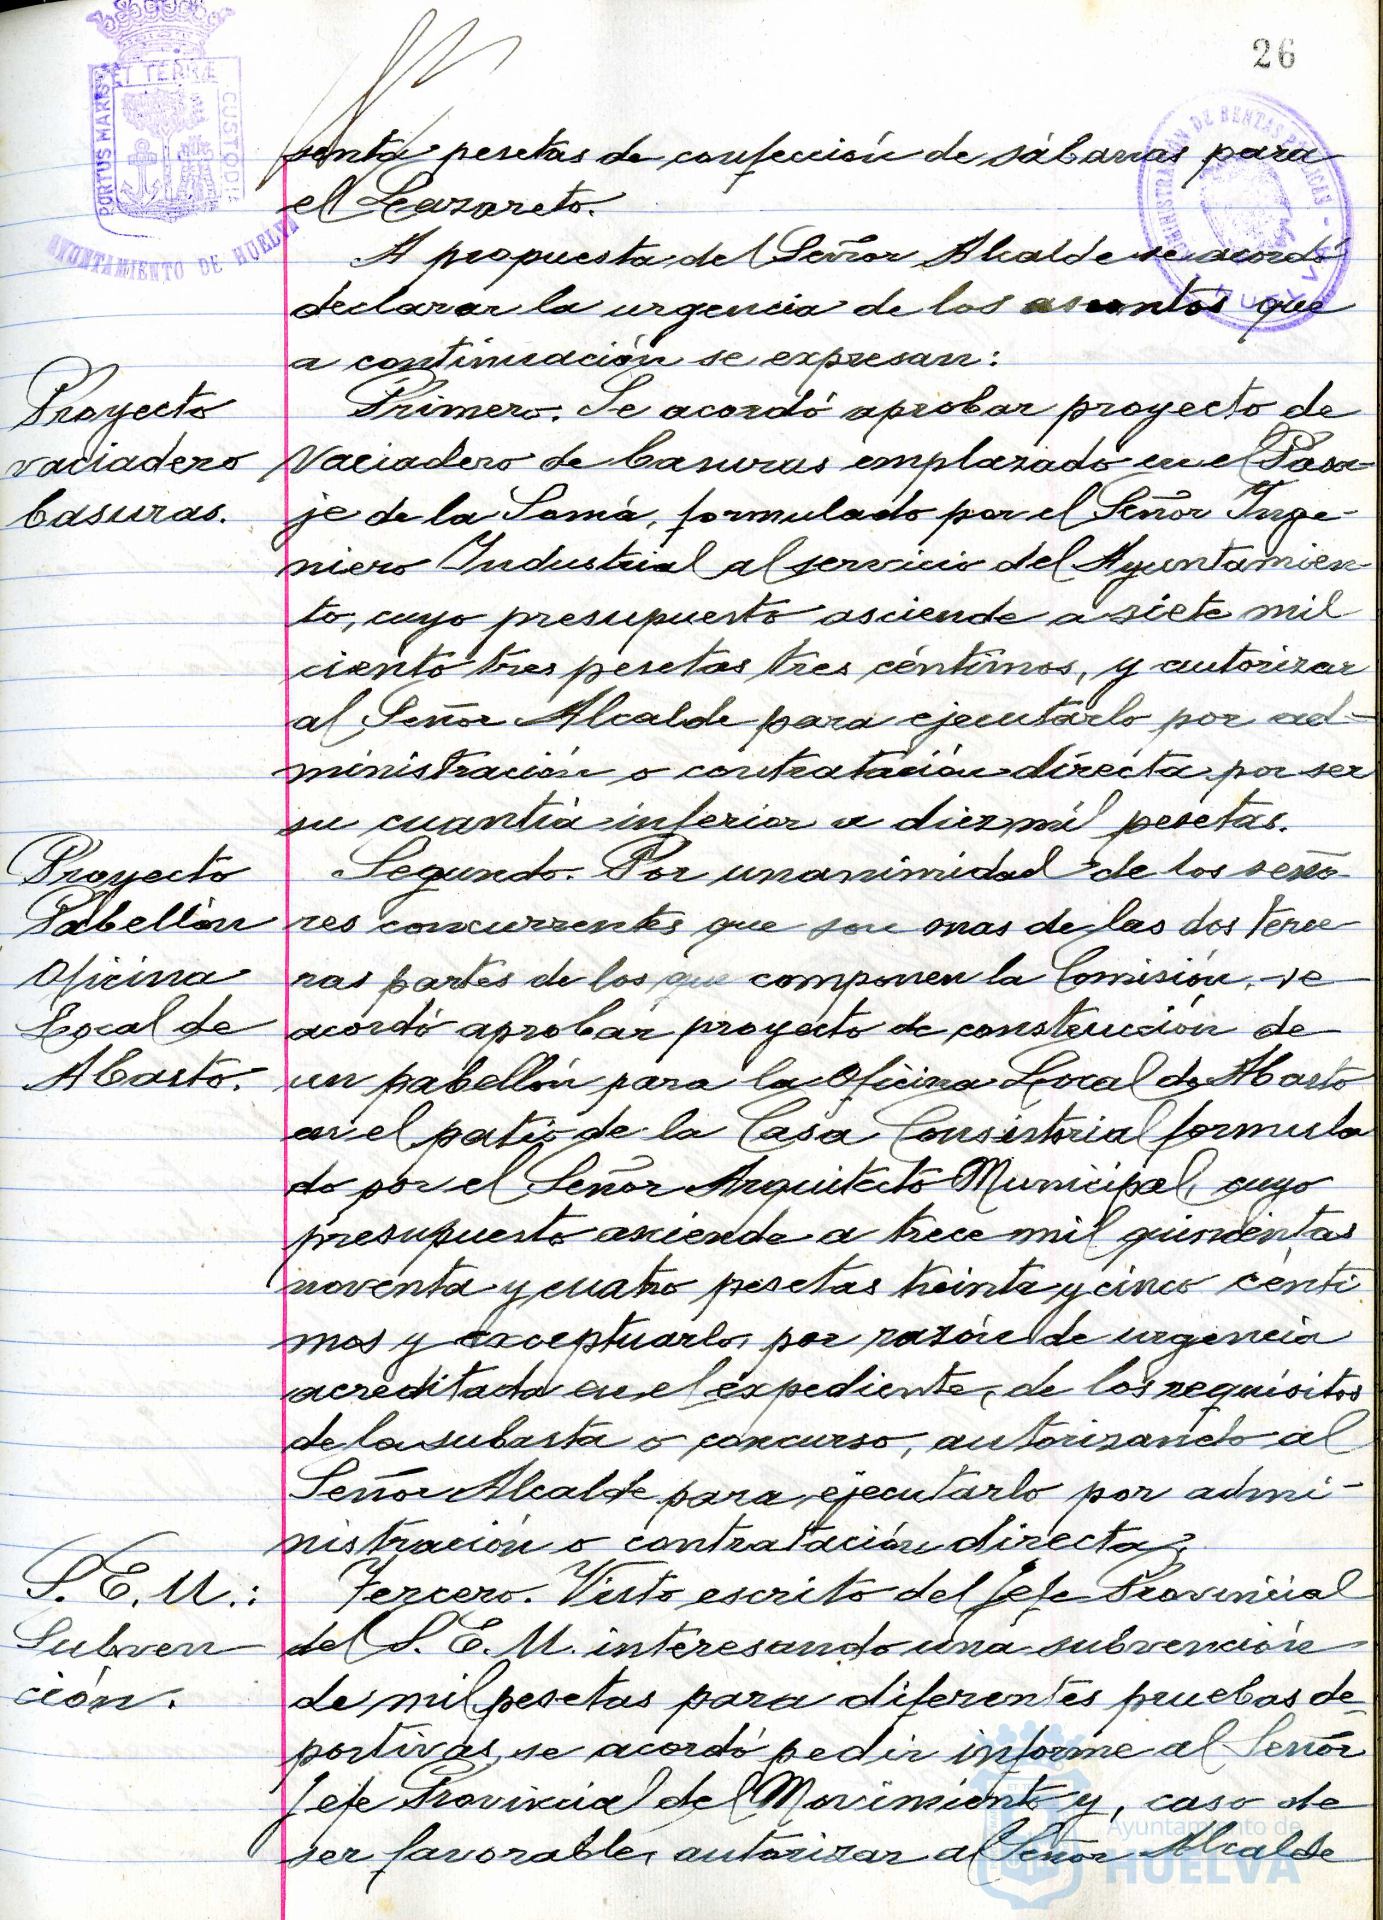 26
PORTUS MARIS ET TERRÆ CUSTODIA
AYUNTAMIENTO DE HUELVA
ADMINISTRACIÓN DE RENTAS PUBLICAS - HUELVA
senta pesetas de confección de sábanas para
el Lazareto.
A propuesta del Señor Alcalde se acordó
declarar la urgencia de los asuntos que
a continuación se expresan:
Proyecto
vaciadero
basuras.
Primero. Se acordó aprobar proyecto de
Vaciadero de basuras emplazado en el Pasa-
je de la Soma, formulado por el Señor Inge-
niero Industrial al servicio del Ayuntamien-
to, cuyo presupuesto asciende a siete mil
ciento tres pesetas tres céntimos, y autorizar
al Señor Alcalde para ejecutarlo por ad-
ministración o contratación directa por ser
su cuantía inferior a diez mil pesetas.
Proyecto
Pabellón
Oficina
Local de
Abasto.
Segundo. Por unanimidad de los seño-
res concurrentes que son mas de las dos terce-
ras partes de los que componen la Comisión, se
acordó aprobar proyecto de construcción de
un pabellón para la Oficina Local de Abasto
en el patio de la Casa Consistorial formula
do por el Señor Arquitecto Municipal, cuyo
presupuesto asciende a trece mil quinientas
noventa y cuatro pesetas treinta y cinco cénti
mos y exceptuarlo, por razón de urgencia
acreditada en el expediente, de los requisitos
de la subasta o concurso, autorizando al
Señor Alcalde para ejecutarlo por admi-
nistración o contratación directa.
S. E. U.:
Subven-
ción.
Tercero. Visto escrito del Jefe Provincial
del S. E. U. interesando una subvención
de mil pesetas para diferentes pruebas de-
portivas, se acordó pedir informe al Señor
Jefe Provincial del Movimiento y, caso de
ser favorable, autorizar al Señor Alcalde
Ayuntamiento de
HUELVA